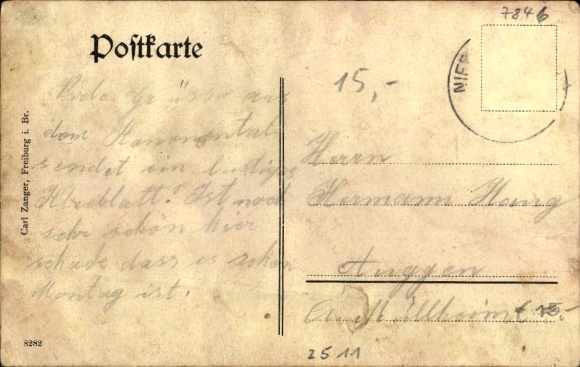 7846
Postkarte
NIED
15,-
Viele Grüsse aus
dem
sendet ein lustiges
Kleeblatt! Ist noch
sehr schön hier
schade dass es schon
Montag ist.
Herrn
Hermann Haug
Auggen
A. Müllheim
€ 15.-
Carl Zanger, Freiburg i. Br.
8282
2511